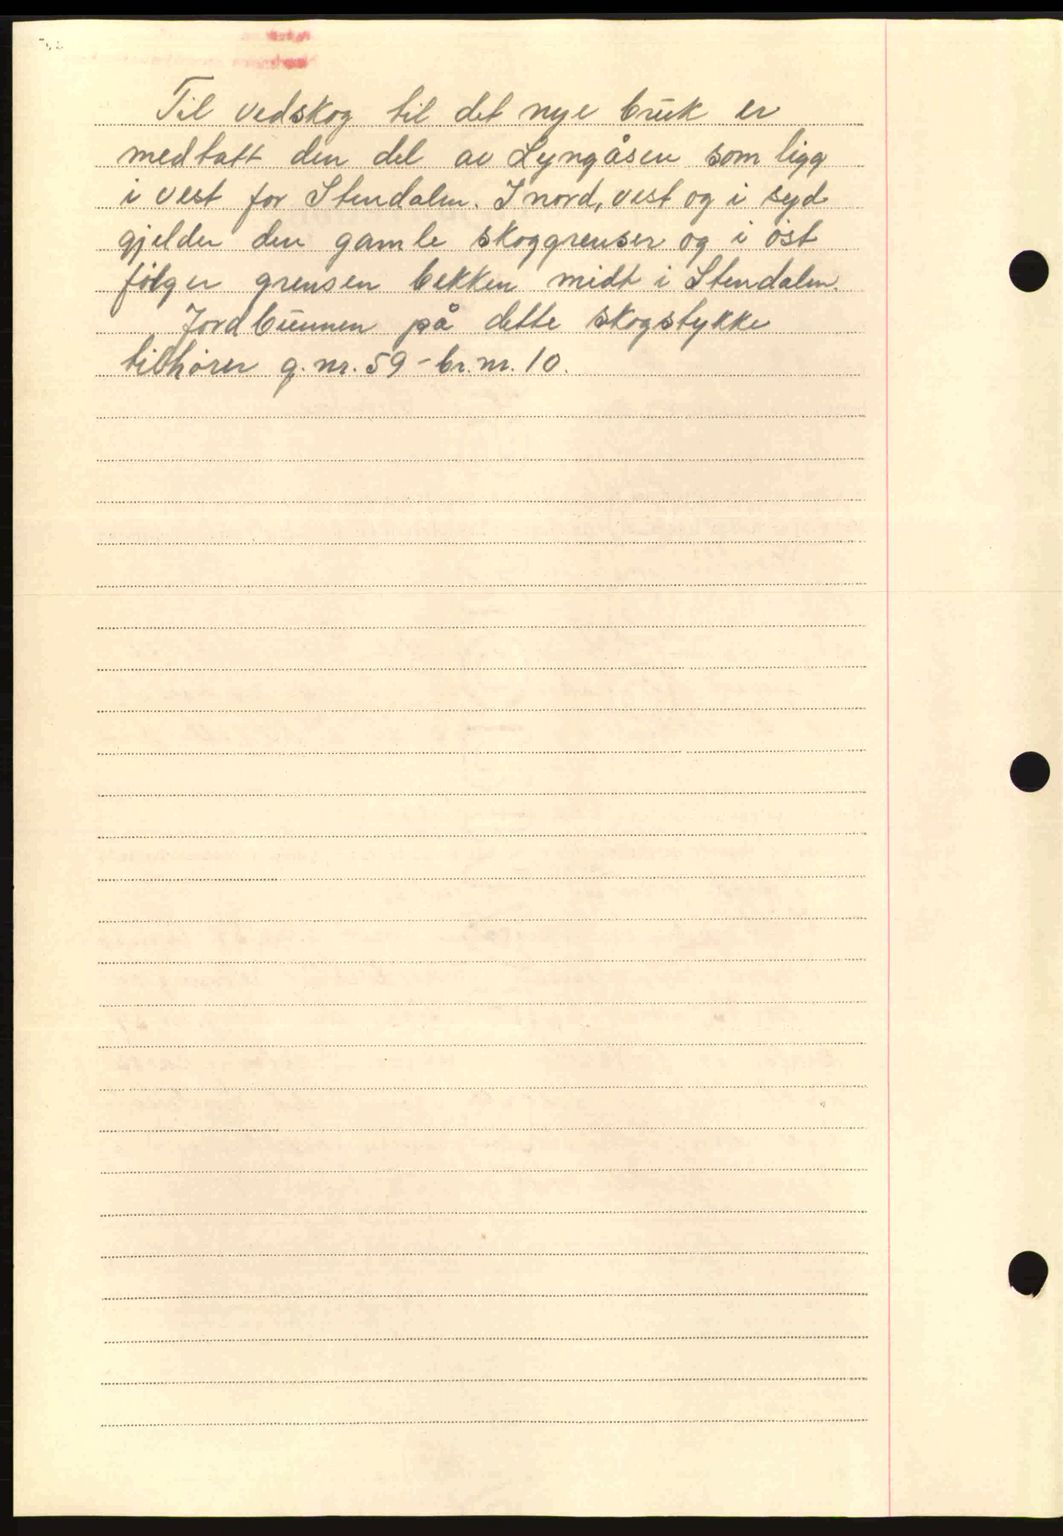 Til vedskog til det nye bruk er
medtatt den del av Lyngåsen som ligg
i vest for Stendalen. I nord, vest og i syd
gjelder den gamle skoggrenser og i øst
følger grensen bekken midt i Stendalen.
Jordbunnen på dette skogstykke
tilhører g.nr. 59 - br.nr. 10.